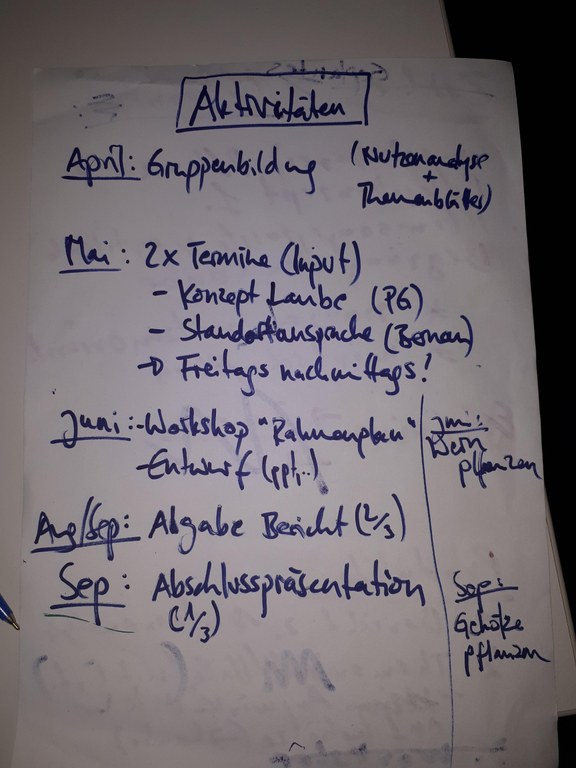 Aktivitäten
April: Gruppenbildung (Nutzenanalyse
+
Themenblätter)
Mai: 2x Termine (Input)
- Konzept Laube (PG)
- Standortansprache (Bernau)
→ Freitags nachmittags!
Juni: - Workshop "Rahmenplan"
- Entwurf (ppt,..)
Aug/Sep: Abgabe Bericht (2/3)
Sep: Abschlusspräsentation
(1/3)
Juni:
Wein
pflanzen
Sep:
Gehölze
pflanzen